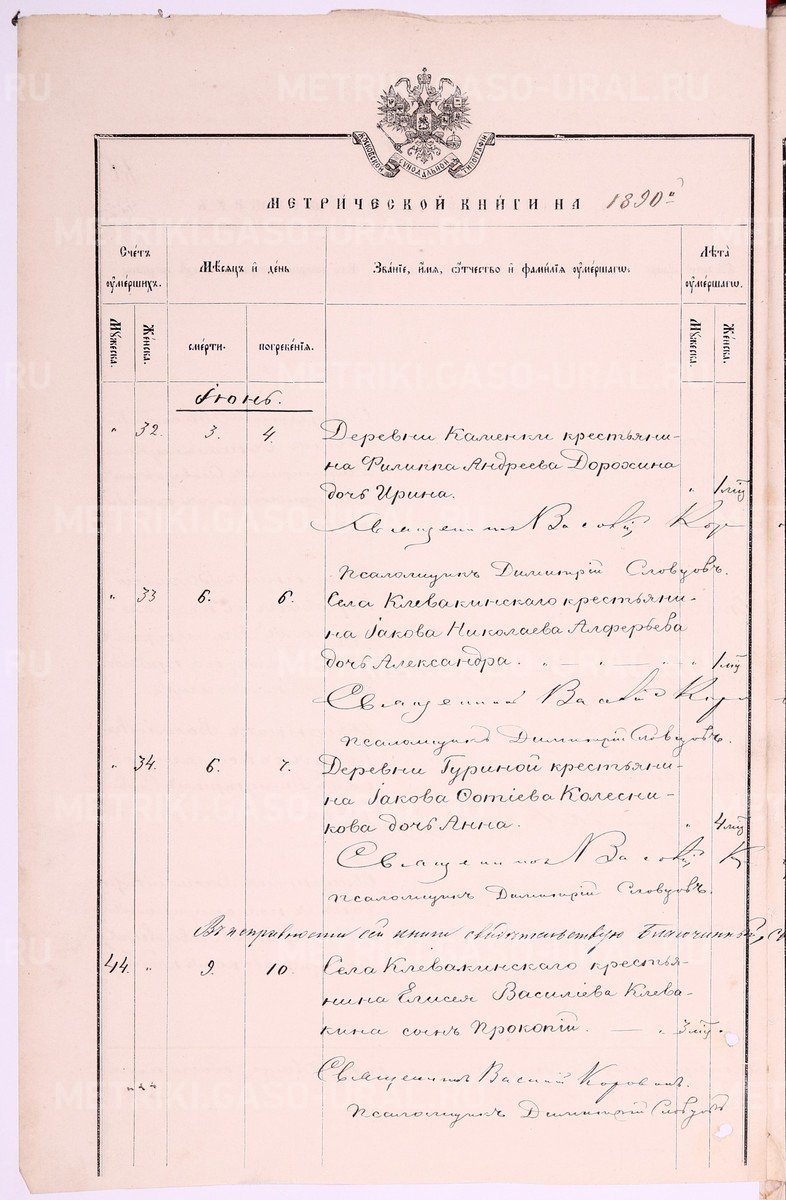 МОСКОВСКОЙ СѴНОДАЛЬНОЙ ТИПОГРАФІИ
МЕТРИ́ЧЕСКОЙ КНИ́ГИ НА 1890й
Сче́тъ ᲂу҆ме́ршихъ.
Мѣ́сяцъ и҆ де́нь
Зва́нїе, и҆́мя, ѻ҆́тчество и҆ фамилі́я ᲂу҆ме́ршагѡ.
Лѣта̀ ᲂу҆ме́ршагѡ.
Мꙋ́жеска.
Же́нска.
сме́рти.
погребе́нїя.
Мꙋ́жеска.
Же́нска.
Іюнь.
" 32. 3. 4. Деревни Каменки крестьяни-
на Филиппа Андреева Дорохина
дочь Ирина. " 1 мц
Священникъ Василій Кор
Псаломщикъ Димитрій Словцовъ.
" 33 6. 6. Села Клевакинскаго крестьяни-
на Іакова Николаева Алферьева
дочь Александра. " — " — " " 1 мц
Священникъ Василій Кор
Псаломщикъ Димитрій Словцовъ.
" 34. 6. 7. Деревни Гуриной крестьяни-
на Іакова Сотіева Колесни-
кова дочь Анна. " 4 мц
Священникъ Василій К
Псаломщикъ Димитрій Словцовъ.
Въ исправности сей книги свидѣтельствую Благочинный,
44. " 9. 10. Села Клевакинскаго крестья-
нина Елисея Василіева Клева-
кина сынъ Прокопій. — " 3 мц "
Священникъ Василій Коровинъ.
Псаломщикъ Димитрій Словцовъ
METRIKI.GASO-URAL.RU